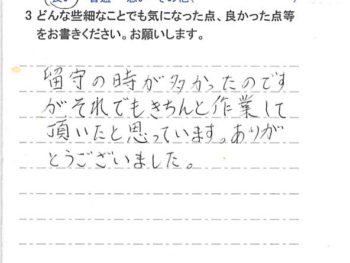 3 どんな些細なことでも気になった点、良かった点等
をお書きください。お願いします。
留守の時が多かったのです
がそれでもきちんと作業して
頂いたと思っています。ありが
とうございました。